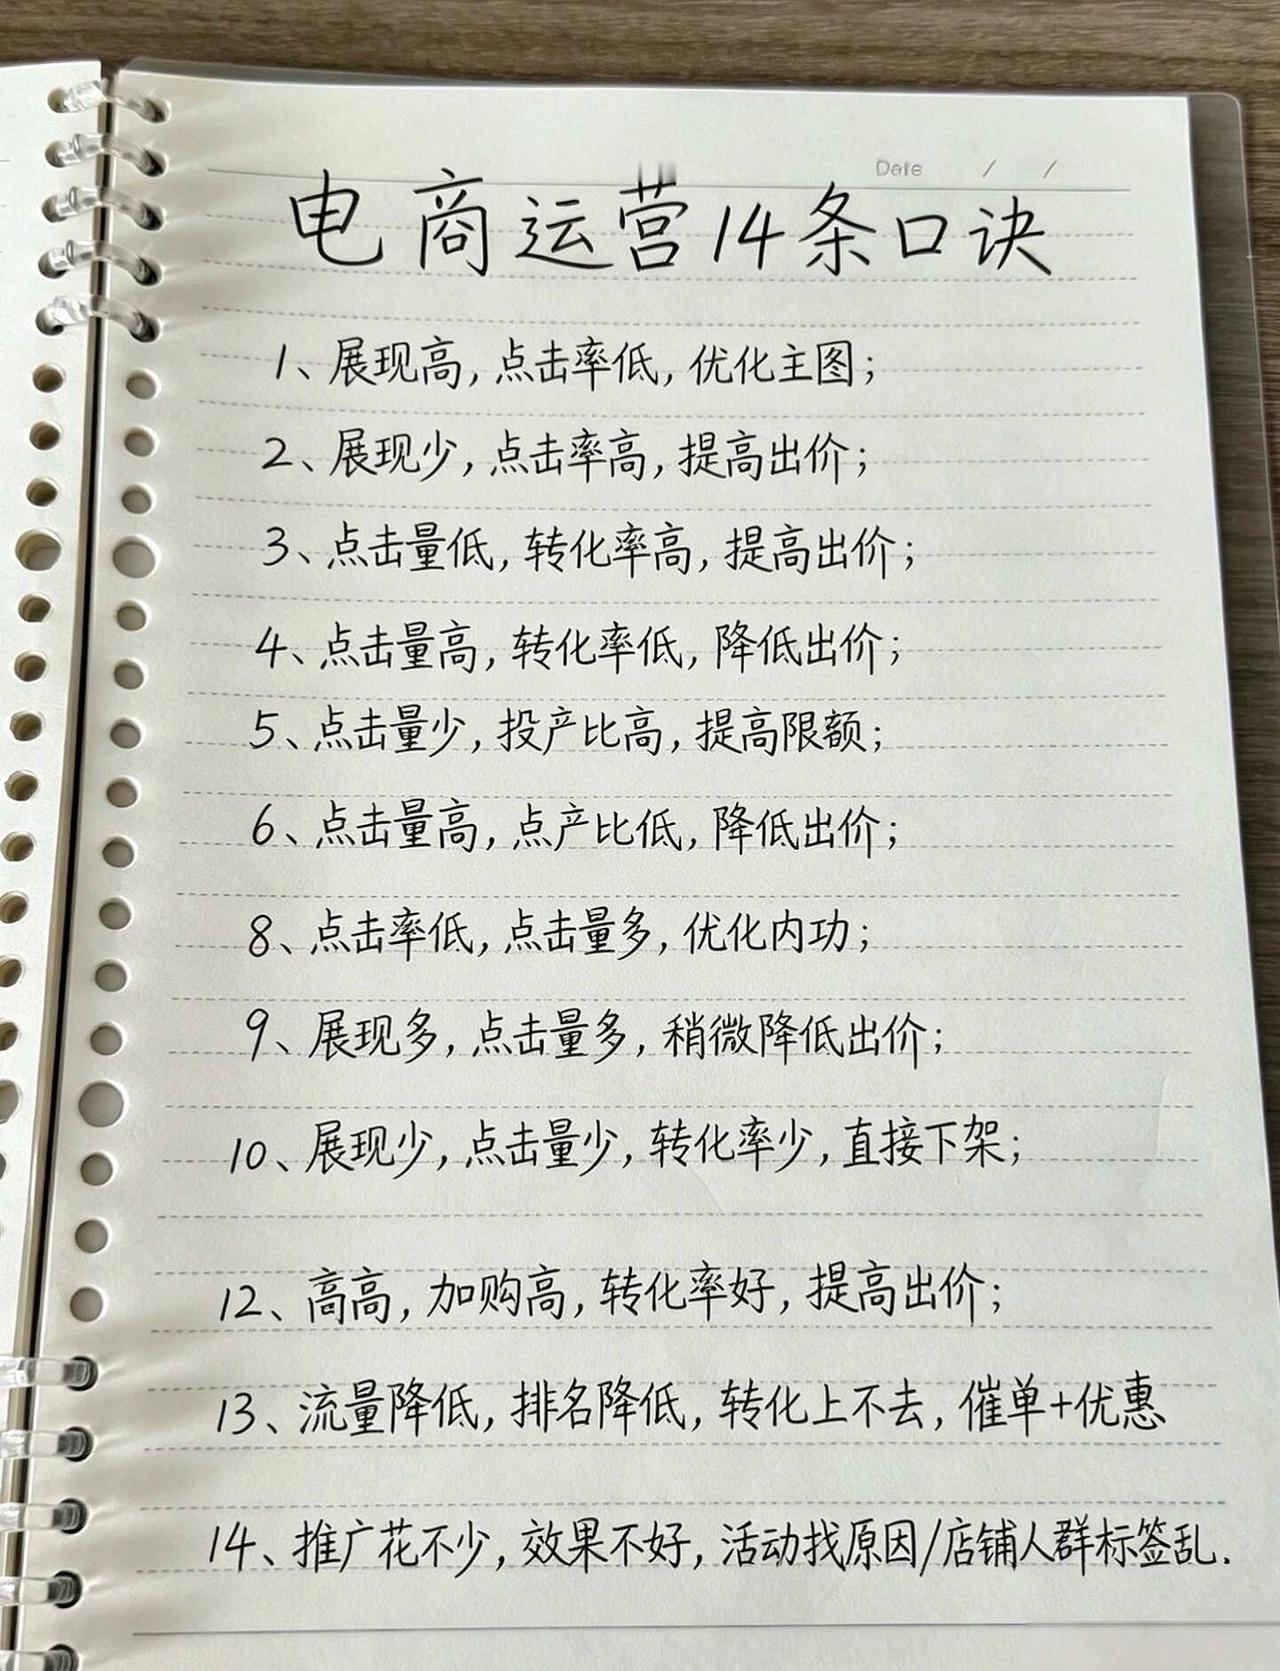 Date / /
电商运营14条口诀
1、展现高,点击率低,优化主图;
2、展现少,点击率高,提高出价;
3、点击量低,转化率高,提高出价;
4、点击量高,转化率低,降低出价;
5、点击量少,投产比高,提高限额;
6、点击量高,点产比低,降低出价;
8、点击率低,点击量多,优化内功;
9、展现多,点击量多,稍微降低出价;
10、展现少,点击量少,转化率少,直接下架;
12、高高,加购高,转化率好,提高出价;
13、流量降低,排名降低,转化上不去,催单+优惠
14、推广花不少,效果不好,活动找原因/店铺人群标签乱.